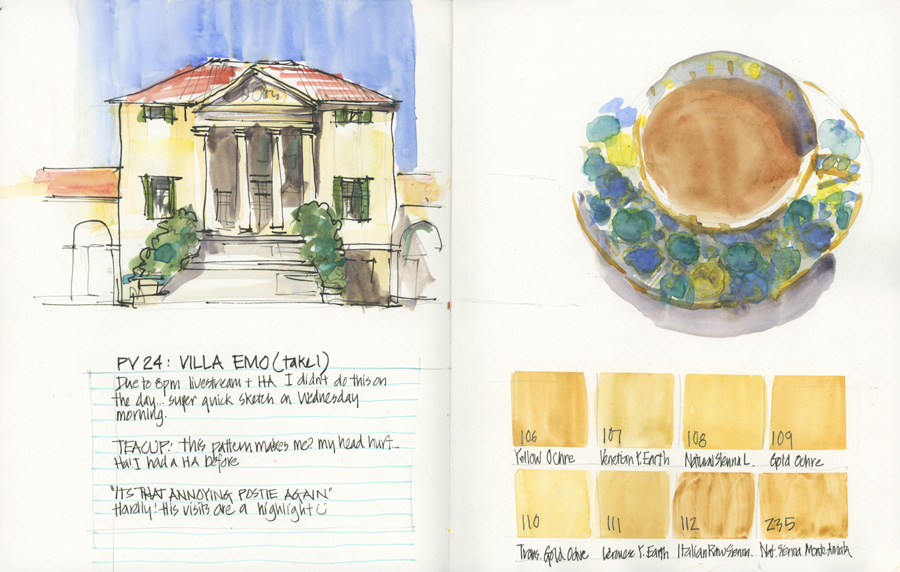 PV 24: VILLA EMO (take 1)
Due to 8pm livestream + HA I didn't do this on
the day... super quick sketch on Wednesday
morning.
TEACUP: this pattern makes me? my head hurt...
Ha! I had a HA before
"IT'S THAT ANNOYING POSTIE AGAIN"
Hardly! His visits are a highlight
106 107 108 109
Yellow Ochre Venetian Y. Earth Natural Sienna L. Gold Ochre
110 111 112 235
Trans. Gold Ochre Veronese Y. Earth Italian Raw Sienna Nat. Sienna Monte Amiata